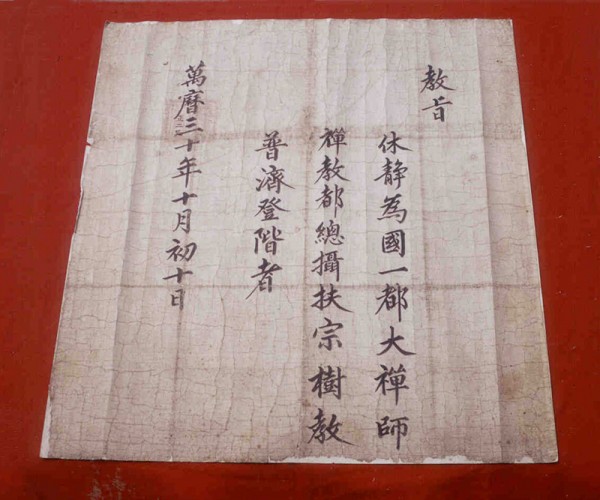 教旨
休静為國一都大禪師
禪教都總攝扶宗樹教
普濟登階者
萬曆三十年十月初十日